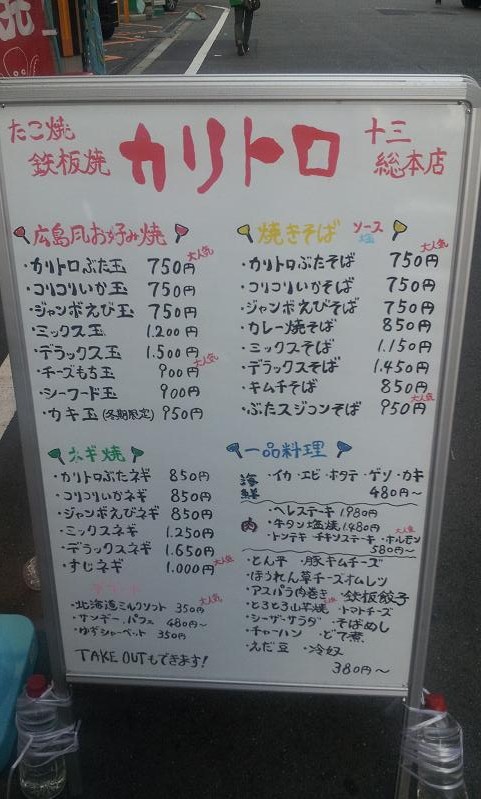 たこ焼
鉄板焼
カリトロ
十三
総本店
広島風お好み焼
大人気
・カリトロぶた玉 750円
・コリコリいか玉 750円
・ジャンボえび玉 750円
・ミックス玉 1.200円
・デラックス玉 1.500円
大人気
・チーズもち玉 900円
・シーフード玉 900円
・カキ玉(冬期限定) 950円
焼きそば ソース
塩
大人気
・カリトロぶたそば 750円
・コリコリいかそば 750円
・ジャンボえびそば 750円
・カレー焼そば 850円
・ミックスそば 1.150円
・デラックスそば 1.450円
・キムチそば 850円
大人気
・ぶたスジコンそば 950円
ネギ焼
・カリトロぶたネギ 850円
・コリコリいかネギ 850円
・ジャンボえびネギ 850円
・ミックスネギ 1.250円
・デラックスネギ 1.650円
大人気
・すじネギ 1.000円
デザート
大人気
・北海道ミルクソフト 350円
・サンデー・パフェ 480円〜
・ゆずシャーベット 350円
TAKE OUTもできます!
一品料理
海鮮
・イカ・エビ・ホタテ・ゲソ・カキ
480円〜
肉
・ヘレステーキ 1.980円
・牛タン塩焼 1.480円
大人気
・トンテキ チキンステーキ・ホルモン
580円〜
・とん平 ・豚キムチーズ
・ほうれん草チーズオムレツ
・アスパラ肉巻き ・鉄板餃子
・とろとろ山芋焼 ・トマトチーズ
・シーザーサラダ ・そばめし
・チャーハン ・どて煮
・えだ豆 ・冷奴
380円〜